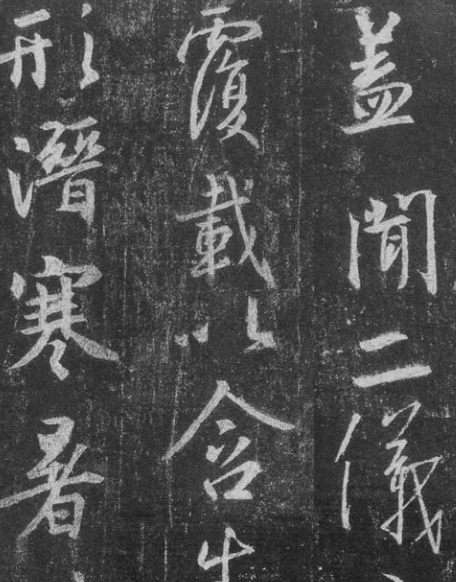 盖闻二儀
覆載以含生
形潛寒暑